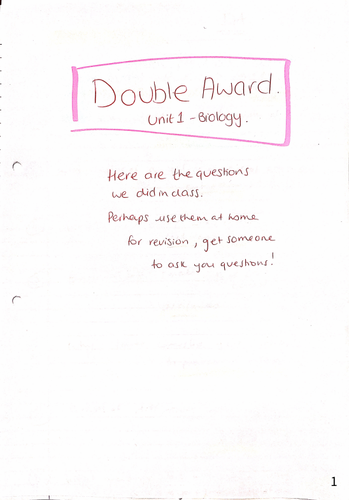 Double Award.
Unit 1 - Biology.
Here are the questions
we did in class.
Perhaps use them at home
for revision, get someone
to ask you questions!
1